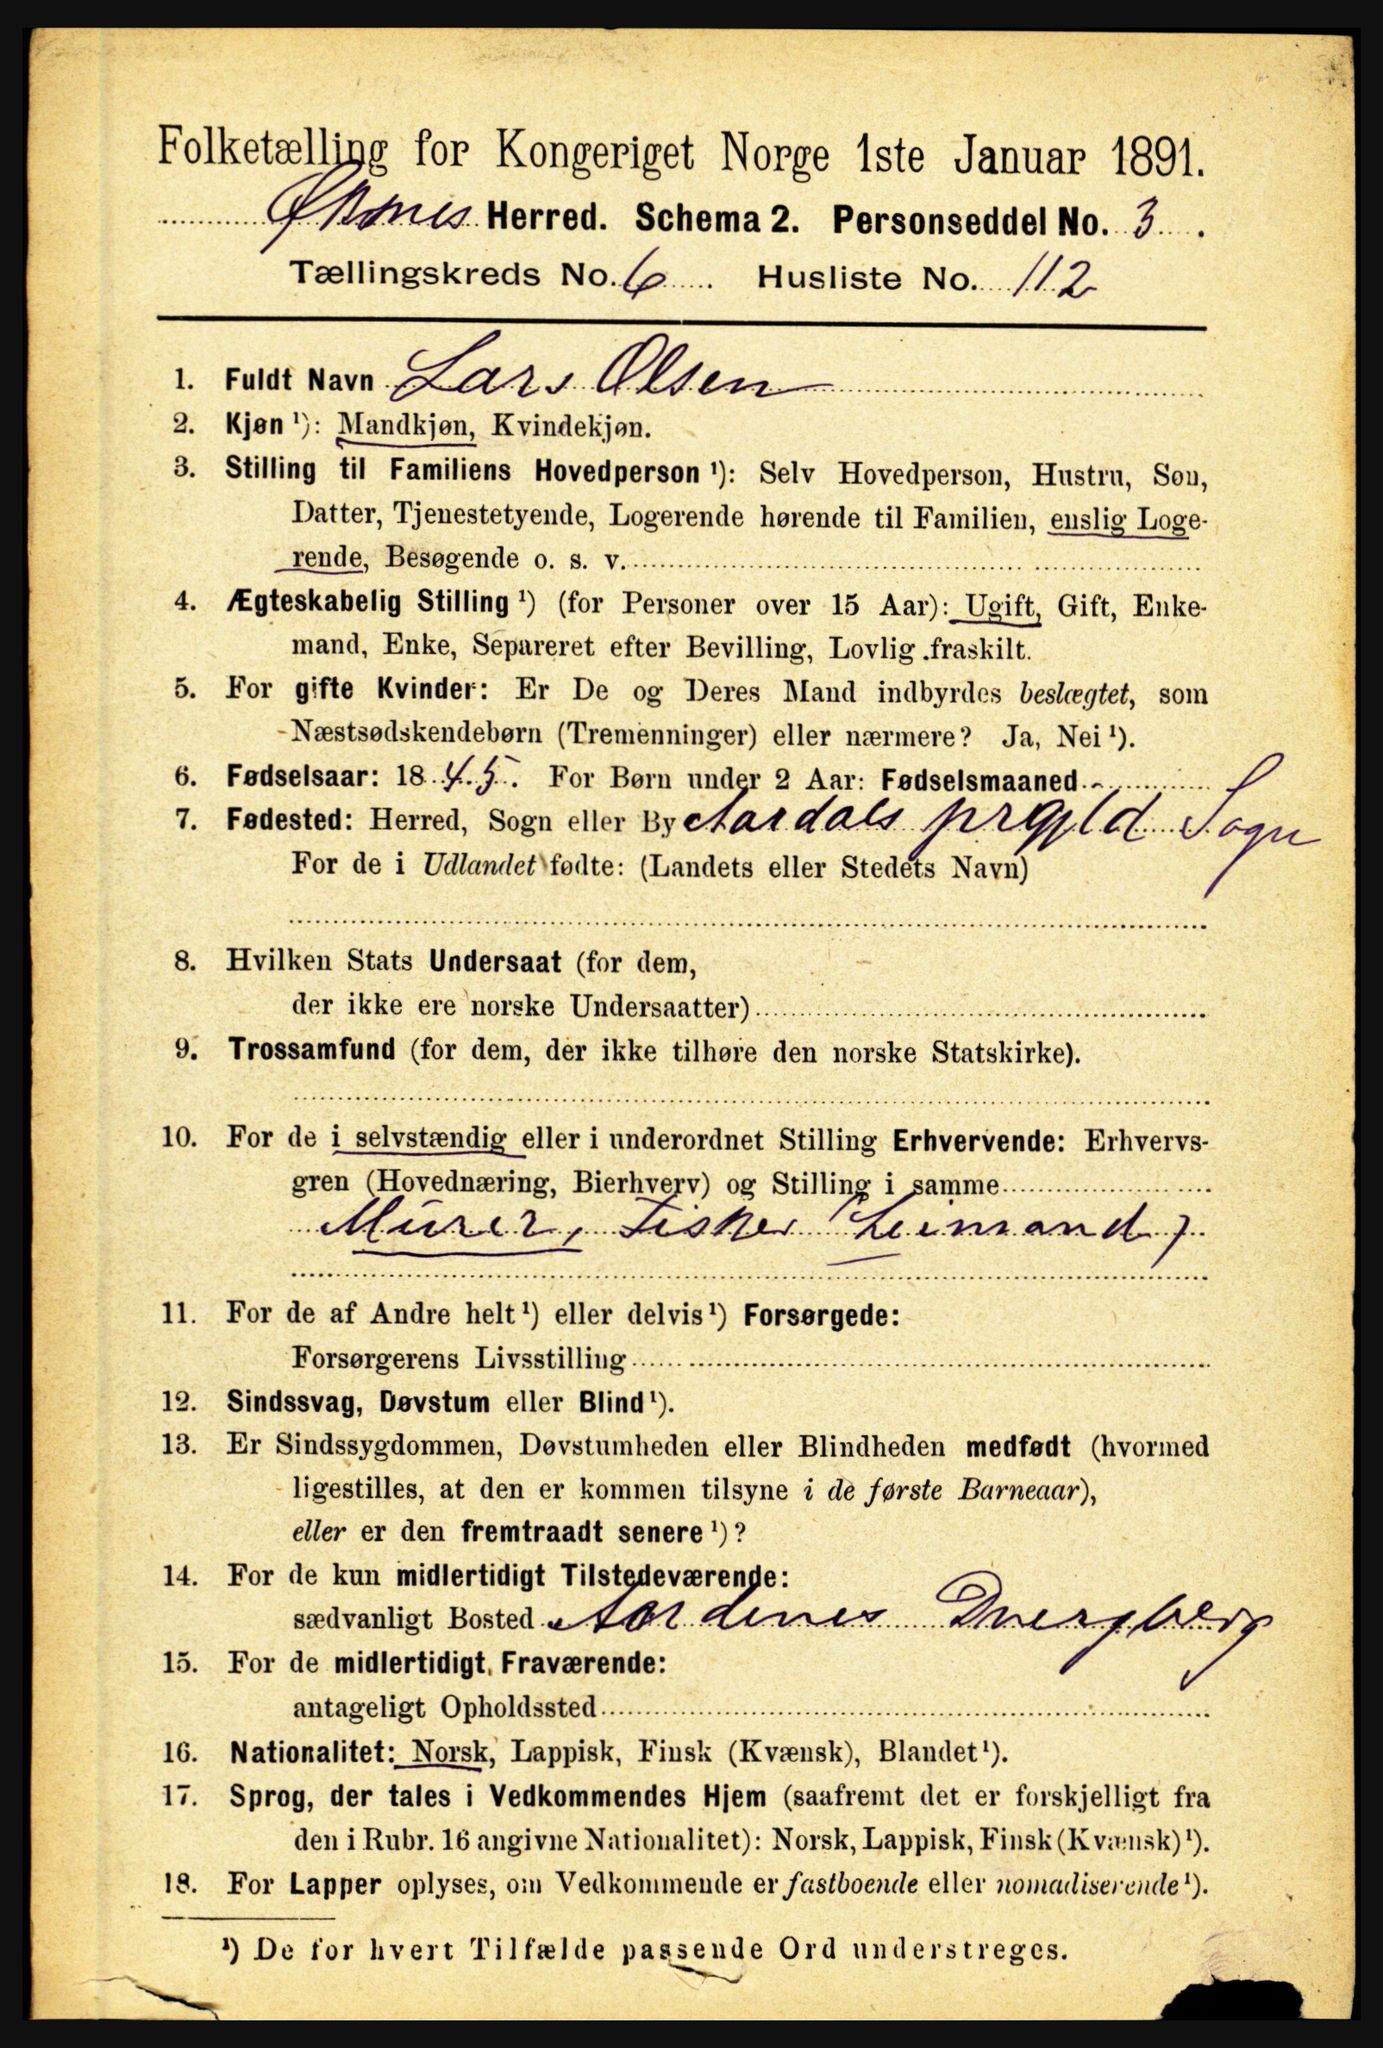 Folketælling for Kongeriget Norge 1ste Januar 1891.
Øksnes Herred. Schema 2. Personseddel No. 3.
Tællingskreds No. 6. Husliste No. 112
1. Fuldt Navn Lars Olsen
2. Kjøn ¹): Mandkjøn, Kvindekjøn.
3. Stilling til Familiens Hovedperson ¹): Selv Hovedperson, Hustru, Søn,
Datter, Tjenestetyende, Logerende hørende til Familien, enslig Loge-
rende, Besøgende o. s. v.
4. Ægteskabelig Stilling ¹) (for Personer over 15 Aar): Ugift, Gift, Enke-
mand, Enke, Separeret efter Bevilling, Lovlig fraskilt.
5. For gifte Kvinder: Er De og Deres Mand indbyrdes beslægtet, som
Næstsødskendebørn (Tremenninger) eller nærmere? Ja, Nei ¹).
6. Fødselsaar: 1845. For Børn under 2 Aar: Fødselsmaaned
7. Fødested: Herred, Sogn eller By Aardals prgjld Sogn
For de i Udlandet fødte: (Landets eller Stedets Navn)
8. Hvilken Stats Undersaat (for dem,
der ikke ere norske Undersaatter)
9. Trossamfund (for dem, der ikke tilhøre den norske Statskirke).
10. For de i selvstændig eller i underordnet Stilling Erhvervende: Erhvervs-
gren (Hovednæring, Bierhverv) og Stilling i samme
Murer, Fisker (Leimand)
11. For de af Andre helt ¹) eller delvis ¹) Forsørgede:
Forsørgerens Livsstilling
12. Sindssvag, Døvstum eller Blind ¹).
13. Er Sindssygdommen, Døvstumheden eller Blindheden medfødt (hvormed
ligestilles, at den er kommen tilsyne i de første Barneaar),
eller er den fremtraadt senere ¹)?
14. For de kun midlertidigt Tilstedeværende:
sædvanligt Bosted Aardenes Dvergberg
15. For de midlertidigt Fraværende:
antageligt Opholdssted
16. Nationalitet: Norsk, Lappisk, Finsk (Kvænsk), Blandet ¹).
17. Sprog, der tales i Vedkommendes Hjem (saafremt det er forskjelligt fra
den i Rubr. 16 angivne Nationalitet): Norsk, Lappisk, Finsk (Kvænsk) ¹).
18. For Lapper oplyses, om Vedkommende er fastboende eller nomadiserende ¹).
¹) De for hvert Tilfælde passende Ord understreges.